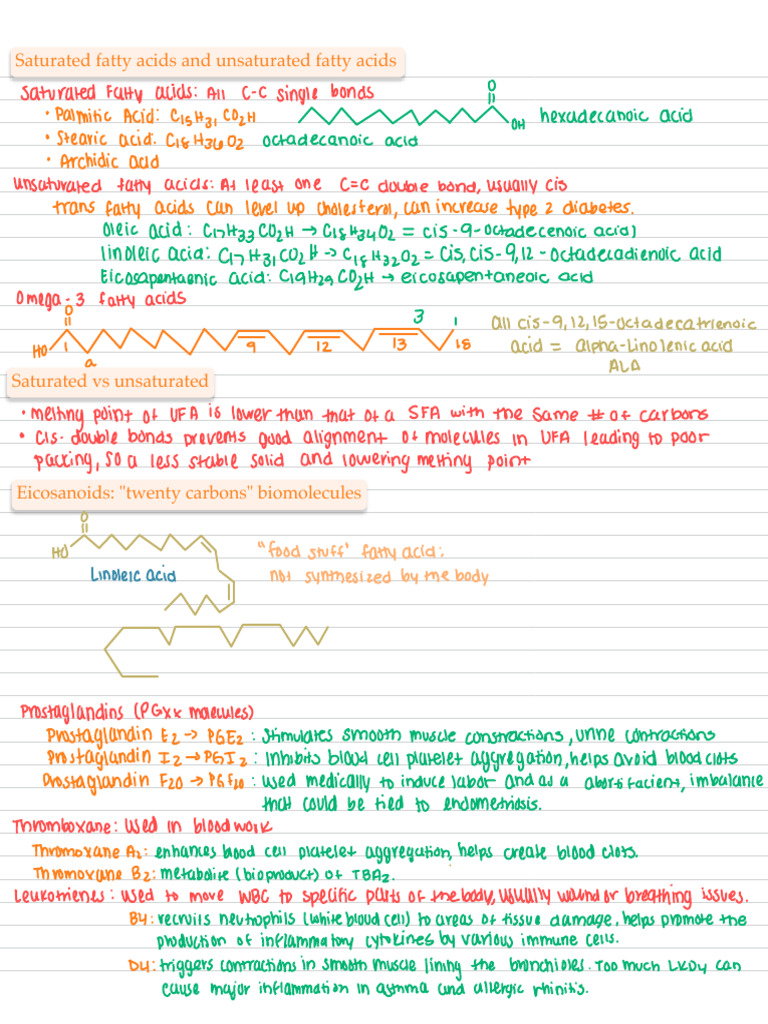 Saturated fatty acids and unsaturated fatty acids
Saturated Fatty acids: All C-C single bonds
• Palmitic Acid: C15H31CO2H
O
OH
hexadecanoic acid
• Stearic acid: C18H36O2 octadecanoic acid
• Archidic acid
Unsaturated fatty acids: At least one C=C double bond, usually cis
trans fatty acids can level up cholesterol, can increase type 2 diabetes.
Oleic acid: C17H33CO2H → C18H34O2 = cis-9-octadecenoic acid
linoleic acid: C17H31CO2H → C18H32O2 = Cis, Cis-9,12-Octadecadienoic acid
Eicosapentaenic acid: C19H29CO2H → eicosapentaneoic acid
Omega-3 fatty acids
O
HO 1 a 9 12 13 3 1 18
all cis-9,12,15-octadecatrienoic
acid = alpha-Linolenic acid
ALA
Saturated vs unsaturated
• melting point of UFA is lower than that of a SFA with the same # of carbons
• Cis-double bonds prevents good alignment of molecules in UFA leading to poor
packing, so a less stable solid and lowering melting point
Eicosanoids: "twenty carbons" biomolecules
O
HO
Linoleic acid
"food stuff" fatty acid:
not synthesized by the body
Prostaglandins (PGxx molecules)
Prostaglandin E2 → PGE2: Stimulates smooth muscle constractions, urine contractions
Prostaglandin I2 → PGI2: Inhibits blood cell platelet aggregation, helps avoid blood clots
Prostaglandin F20 → PGF20: used medically to induce labor and as a abortifacient, imbalance
that could be tied to endometriosis.
Thromboxane: Used in blood work
Thromoxane A2: enhances blood cell platelet aggregation, helps create blood clots.
Thromoxane B2: metabolite (bioproduct) of TBA2.
Leukotrienes: used to move WBC to specific parts of the body, usually wound or breathing issues.
B4: recruits neutrophils (white blood cell) to areas of tissue damage, helps promote the
production of inflammatory cytokines by various immune cells.
D4: triggers contractions in smooth muscle lining the bronchioles. Too much LKD4 can
cause major inflammation in asthma and allergic rhinitis.